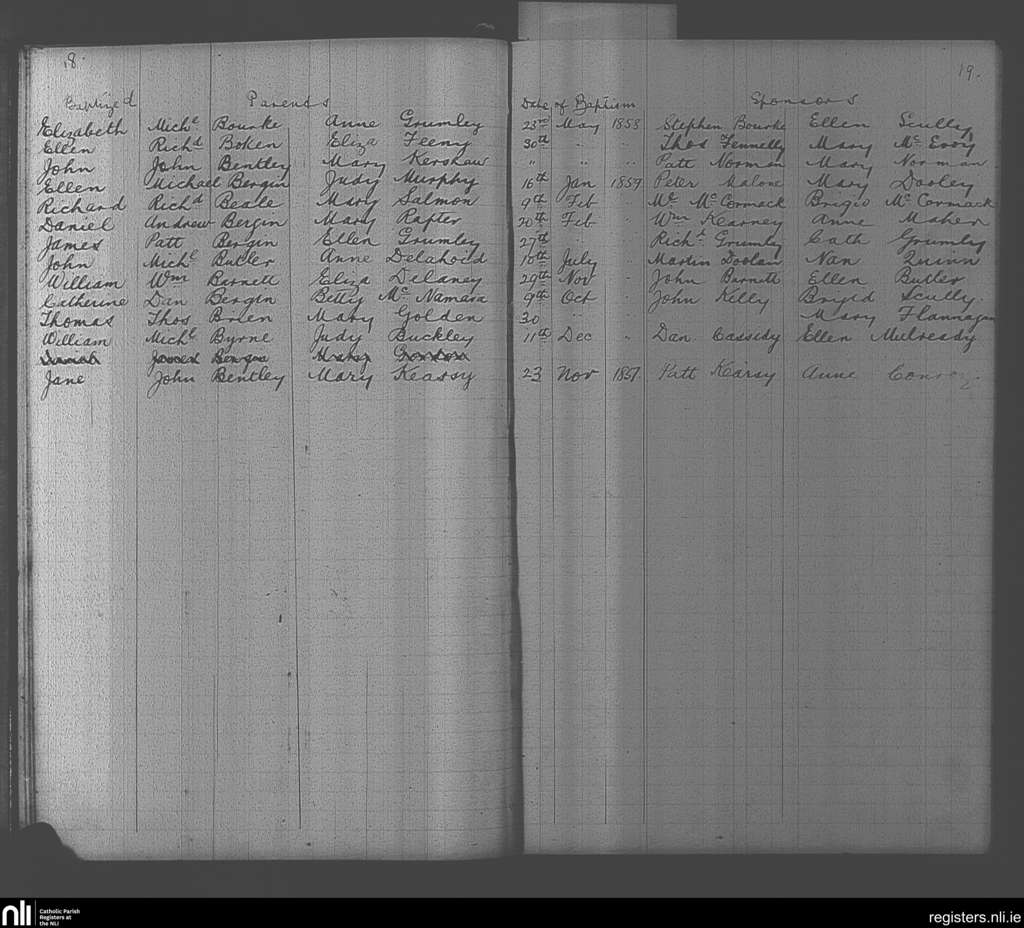 18 19.
Baptized Parents Date of Baptism Sponsors
Elizabeth Michl Bourke Anne Grumley 23rd May 1858 Stephen Bourke Ellen Scully
Ellen Richd Boken Eliza Feeny 30th " " Thos Fennelly Mary Mc Evoy
John John Bentley Mary Kershaw " " " Patt Norman Mary Norman
Ellen Michael Bergin Judy Murphy 16th Jan 1859 Peter Malone Mary Dooley
Richard Richd Beale Mary Salmon 9th Feb " Mc Cormack Brigid Mc Cormack
Daniel Andrew Bergin Mary Rafter 20th Feb " Wm Kearney Anne Maher
James Patt Bergin Ellen Grumley 27th " " Richd Grumley Cath Grumley
John Michl Butler Anne Delahoid 10th July " Martin Doolan Nan Quinn
William Wm Barnett Eliza Delaney 29th Nov " John Barnett Ellen Butler
Catherine Dan Bergin Betty Mc Namara 9th Oct " John Kelly Brigid Scully.
Thomas Thos Brien Mary Golden 30 " " Mary Flannagan
William Michl Byrne Judy Buckley 11th Dec " Dan Cassedy Ellen Mulready
James Bergin Gordon
Jane John Bentley Mary Keassy 23 Nov 1857 Patt Kearsy Anne Conroy.
nli Catholic Parish
Registers at
the NLI
registers.nli.ie